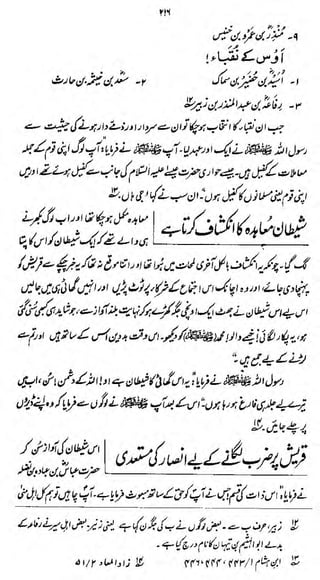 ۲۱۶
۹۔ مُنذِر بن عَمرو بن خنیس
اَوس کے نُقَباء!
۱۔ اُسَیْد بن حُضَیر بن سماک ۲۔ سعد بن خیثمہ بن حارث
۳۔ رفاعہ بن عبدالمنذر بن زبیر ؎۱۲
جب ان نقباء کا انتخاب ہو چکا تو ان سے سردار اور ذمے دار ہونے کی حیثیت سے
رسول اللہ ﷺ نے ایک اور عہد لیا۔ آپ ﷺ نے فرمایا: "آپ لوگ اپنی قوم کے جملہ
معاملات کے کفیل ہیں۔ جیسے حواری حضرت عیسیٰ علیہ السلام کی جانب سے کفیل ہوئے تھے اور میں
اپنی قوم یعنی مسلمانوں کا کفیل ہوں"۔ ان سب نے کہا: جی ہاں۔ ؎۱۳
شیطان معاہدہ کا انکشاف کرتا ہے
معاہدہ مکمل ہو چکا تھا اور اب لوگ بکھرنے
ہی والے تھے کہ ایک شیطان کو اس کا پتا
لگ گیا۔ چونکہ یہ انکشاف بالکل آخری لمحات میں ہوا تھا اور اتنا موقع نہ تھا کہ یہ خبر چپکے سے قریش کو
پہنچا دی جائے اور وہ اچانک اس اجتماع کے شرکاء پر ٹوٹ پڑیں اور انہیں گھاٹی ہی میں جا لیں
اس لیے اس شیطان نے جھٹ ایک اونچی جگہ کھڑے ہو کر نہایت بلند آواز سے، جو شاید ہی کبھی سنی گئی
ہو، یہ پکار لگائی: "خیمے والو! محمد (ﷺ) کو دیکھو۔ اس وقت بددین اس کے ساتھ ہیں اور تم سے
لڑنے کے لیے جمع ہیں"۔
رسول اللہ ﷺ نے فرمایا: "یہ اس گھاٹی کا شیطان ہے۔ او! اللہ کے دشمن! سُن، اب میں
تیرے لیے جلد ہی فارغ ہو رہا ہوں"۔ اس کے بعد آپ ﷺ نے لوگوں سے فرمایا کہ وہ اپنے ڈیروں
پر چلے جائیں۔ ؎۱۴
قریش پر ضرب لگانے کے لیے انصار کی مستعدی
اس شیطان کی آواز سن کر
حضرت عباس بن عبادہ بن نضلہ
نے فرمایا: "اس ذات کی قسم جس نے آپ کو حق کے ساتھ مبعوث فرمایا ہے، آپ چاہیں تو ہم کل اہلِ منیٰ
؎۱۲ زبیر، حرف ب سے۔ بعض لوگوں نے ب کی جگہ ن کہا ہے یعنی زنیر۔ بعض اہلِ سیر نے رفاعہ کے
بدلے ابوالہیثم بن تیہان کا نام درج کیا ہے۔
؎۱۳ ابن ہشام ۱/ ۴۴۳، ۴۴۴، ۴۴۶ ؎۱۴ زاد المعاد ۲/ ۵۱